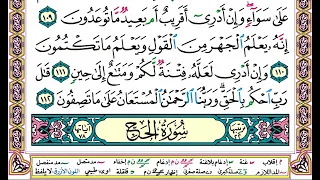 عَلَىٰ سَوَآءٍ وَإِنْ أَدْرِىٓ أَقَرِيبٌ أَم بَعِيدٌ مَّا تُوعَدُونَ ١٠٩
إِنَّهُۥ يَعْلَمُ ٱلْجَهْرَ مِنَ ٱلْقَوْلِ وَيَعْلَمُ مَا تَكْتُمُونَ
١١٠ وَإِنْ أَدْرِى لَعَلَّهُۥ فِتْنَةٌ لَّكُمْ وَمَتَٰعٌ إِلَىٰ حِينٍ ١١١ قَٰلَ
رَبِّ ٱحْكُم بِٱلْحَقِّ وَرَبُّنَا ٱلرَّحْمَٰنُ ٱلْمُسْتَعَانُ عَلَىٰ مَا تَصِفُونَ ١١٢
سُورَةُ الحَجّ